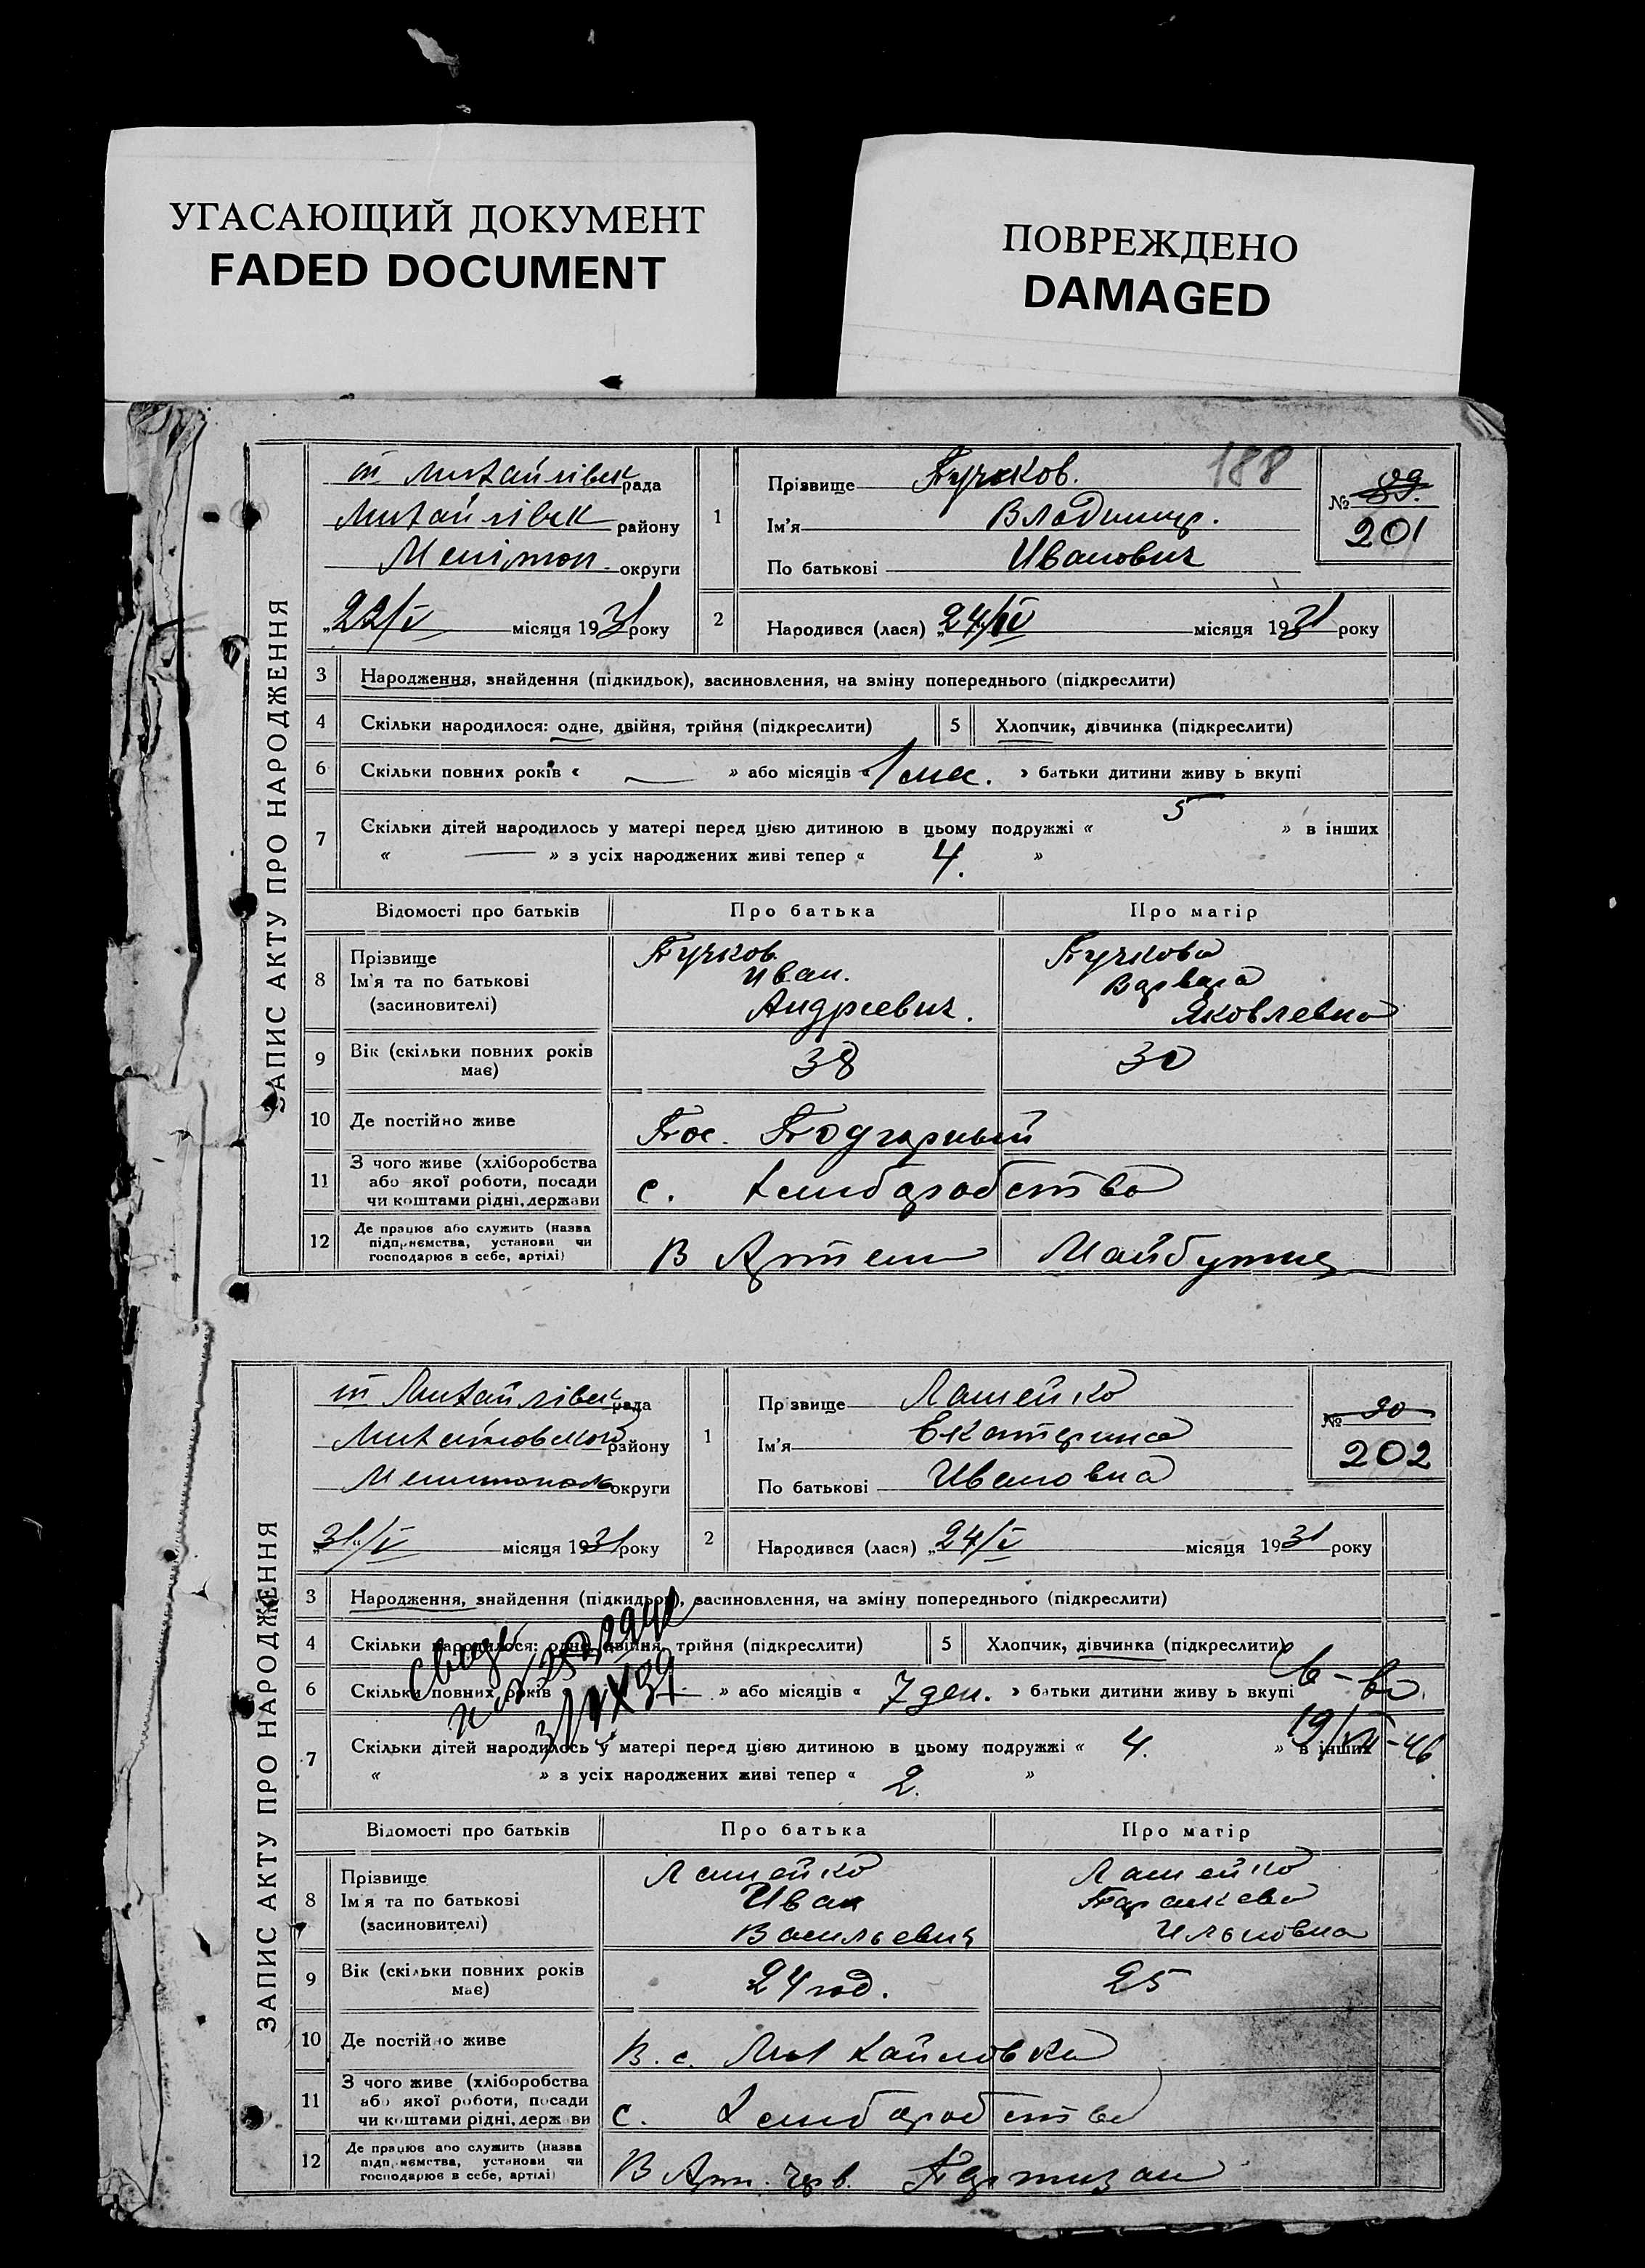 УГАСАЮЩИЙ ДОКУМЕНТ
FADED DOCUMENT
ПОВРЕЖДЕНО
DAMAGED
ЗАПИС АКТУ ПРО НАРОДЖЕННЯ
Михайлівск рада
Михайлівск району
Мелітоп. округи
„22/V місяця 1931 року
188
1 Прізвище Пучков.
Ім'я Владимир.
По батькові Иванович
№ 89.
201
2 Народився (лася) „24/IV місяця 1931 року
3 Народження, знайдення (підкидьок), засиновлення, на зміну попереднього (підкреслити)
4 Скільки народилося: одне, двійня, трійня (підкреслити) 5 Хлопчик, дівчинка (підкреслити)
6 Скільки повних років « — » або місяців « 1 мес. » батьки дитини живу ь вкупі
7 Скільки дітей народилось у матері перед цією дитиною в цьому подружжі « 5 » в інших
« — » з усіх народжених живі тепер « 4. »
Відомості про батьків Про батька Про матір
8 Прізвище Ім'я та по батькові (засиновителі) Пучков Иван. Андреевич. Пучкова Варвара Яковлевна
9 Вік (скільки повних років має) 38 30
10 Де постійно живе Пос. Подгорный
11 З чого живе (хліборобства або якої роботи, посади чи коштами рідні, держави с. Хлибаробства
12 Де працює або служить (назва підприємства, установи чи господарює в себе, артілі) В Артели Майбутнє
ЗАПИС АКТУ ПРО НАРОДЖЕННЯ
Михайлівск рада
Михайловского району
Мелитополь округи
„31/V місяця 1931 року
1 Пр звище Лашейко
Ім'я Екатерина
По батькові Ивановна
№ 90
202
2 Народився (лася) „24/V місяця 1931 року
3 Народження, знайдення (підкидьок), засиновлення, на зміну попереднього (підкреслити)
4 Скільки народилося: одне, двійня, трійня (підкреслити) 5 Хлопчик, дівчинка (підкреслити)
6 Скільки повних років » або місяців « 7 ден. » батьки дитини живу ь вкупі
Св-во.
19/VII-46
7 Скільки дітей народилось у матері перед цією дитиною в цьому подружжі « 4. » в інших
« » з усіх народжених живі тепер « 2. »
Відомості про батьків Про батька Про матір
8 Прізвище Ім'я та по батькові (засиновителі) Лашейко Иван Васильевич Лашейко Параскева Ильиовна
9 Вік (скільки повних років має) 24 год. 25
10 Де постійно живе В. с. Михайловки
11 З чого живе (хліборобства або якої роботи, посади чи коштами рідні, держ ви с. Хлибаробства
12 Де працює або служить (назва підприємства, установи чи господарює в себе, артілі) В Арт. Черв. Партизан